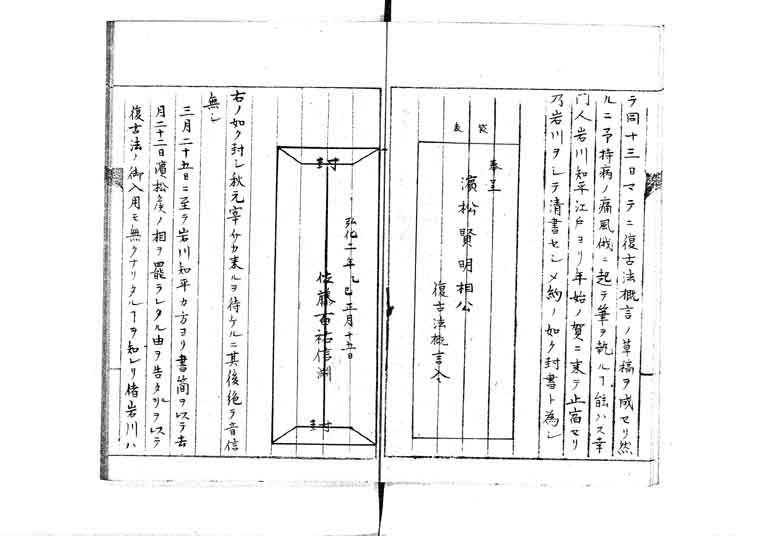 テ同十三日マテニ復古法概言ノ草稿ヲ成セリ然
ルニ予持病ノ痛風俄ニ起テ筆ヲ執ルヿ能ハス幸
門人岩川知平江戸ヨリ年始ノ賀ニ来テ止宿セリ
乃岩川ヲシテ清書セシメ約ノ如ク封書ト為シ
袋表
奉呈
濱松賢明相公
復古法概言全
封
弘化二年乙巳正月十五日
佐藤百祐信淵
封
右ノ如ク封シ秋元宰介カ来ルヲ待ケルニ其後絶テ音信
無シ
三月二十五日ニ至テ岩川知平カ方ヨリ書簡ヲ以テ去
月二十二日濱松矦ノ相ヲ罷ラレタル由ヲ告タリヲ以テ
復古法ノ御入用モ無クナリタルヿヲ知レリ偖岩川ハ